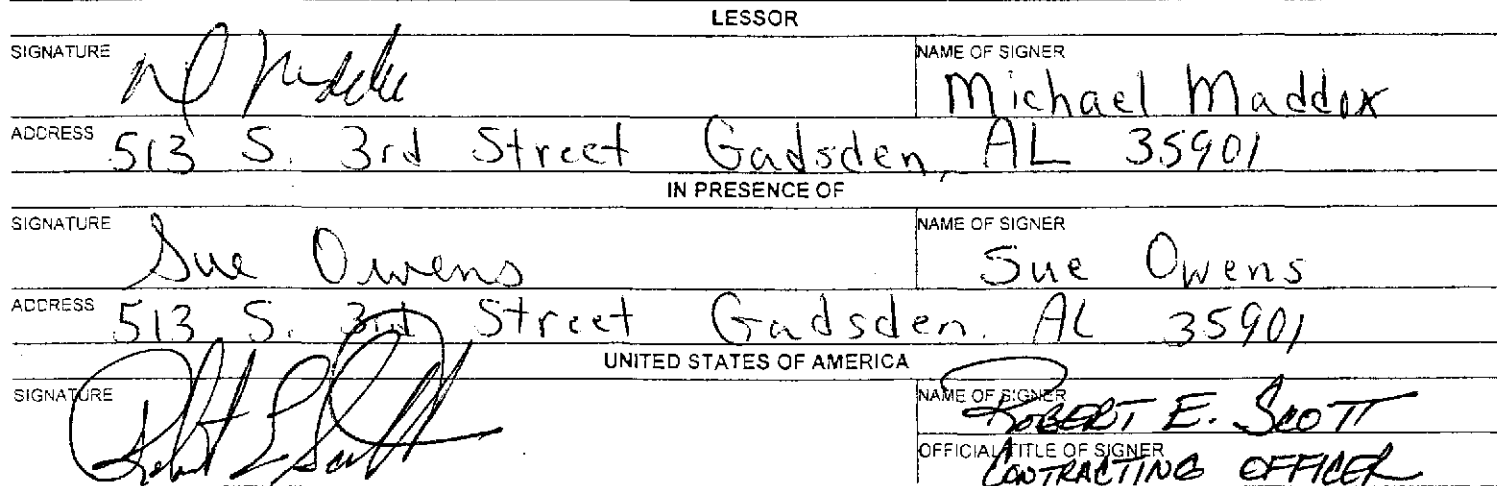 LESSOR
SIGNATURE NAME OF SIGNER
Michael Maddox
ADDRESS 513 S. 3rd Street Gadsden, AL 35901
IN PRESENCE OF
SIGNATURE Sue Owens NAME OF SIGNER Sue Owens
ADDRESS 513 S. 3rd Street Gadsden, AL 35901
UNITED STATES OF AMERICA
SIGNATURE Robert E Scott NAME OF SIGNER ROBERT E. SCOTT
OFFICIAL TITLE OF SIGNER
CONTRACTING OFFICER